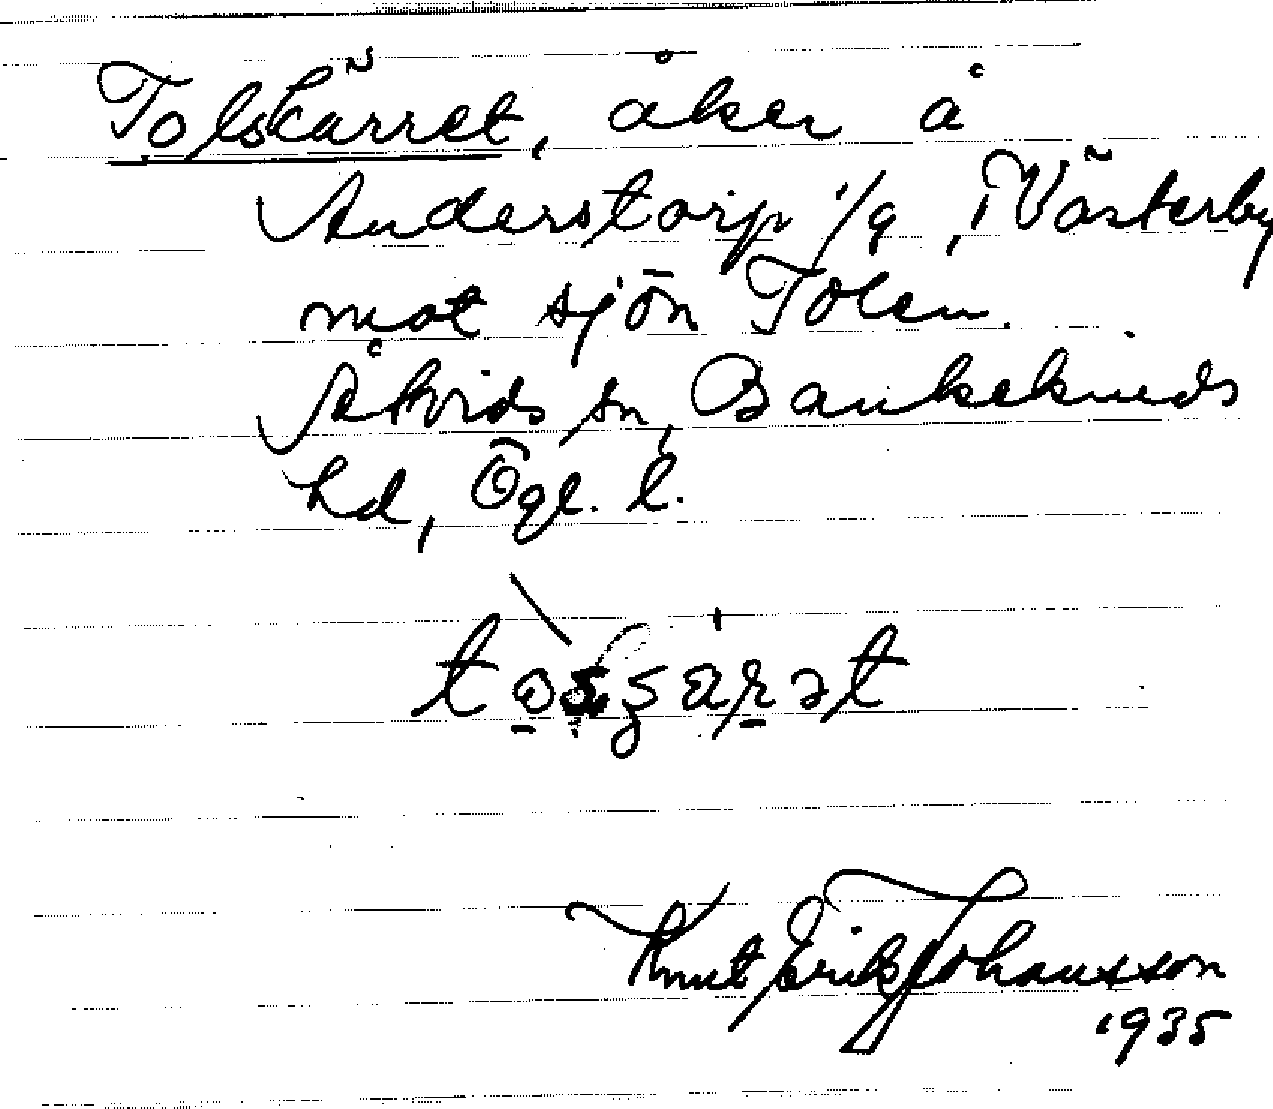 Tolskärret, åker å
Anderstorp 1/9, Västerby
mot sjön Tolen.
Åtvids sn, Bankekinds
hd, Ögl. l.
Knut Erik Johansson
1935